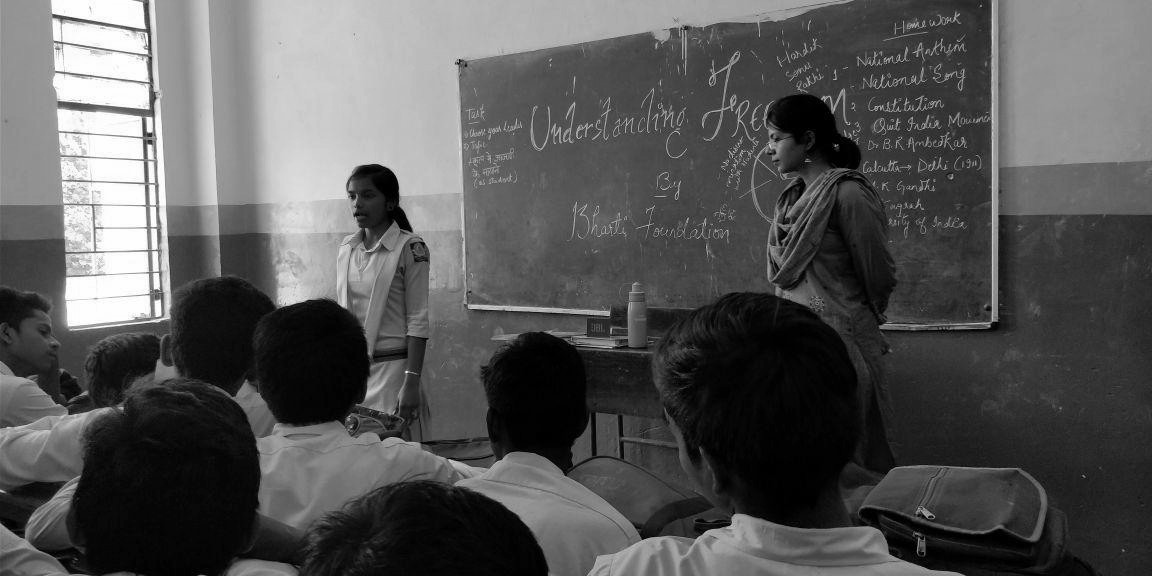 Task
Choose your leader
Topic
(as student)
Understanding
FREEDOM
By
Bharti Foundation
Hardik
Sonu
Rakhi
Home work
1- National Anthem
National Song
Constitution
Quit India
Dr B.R Ambedkar
Calcutta → Delhi (1911)
M.K. Gandhi
of India
JBL